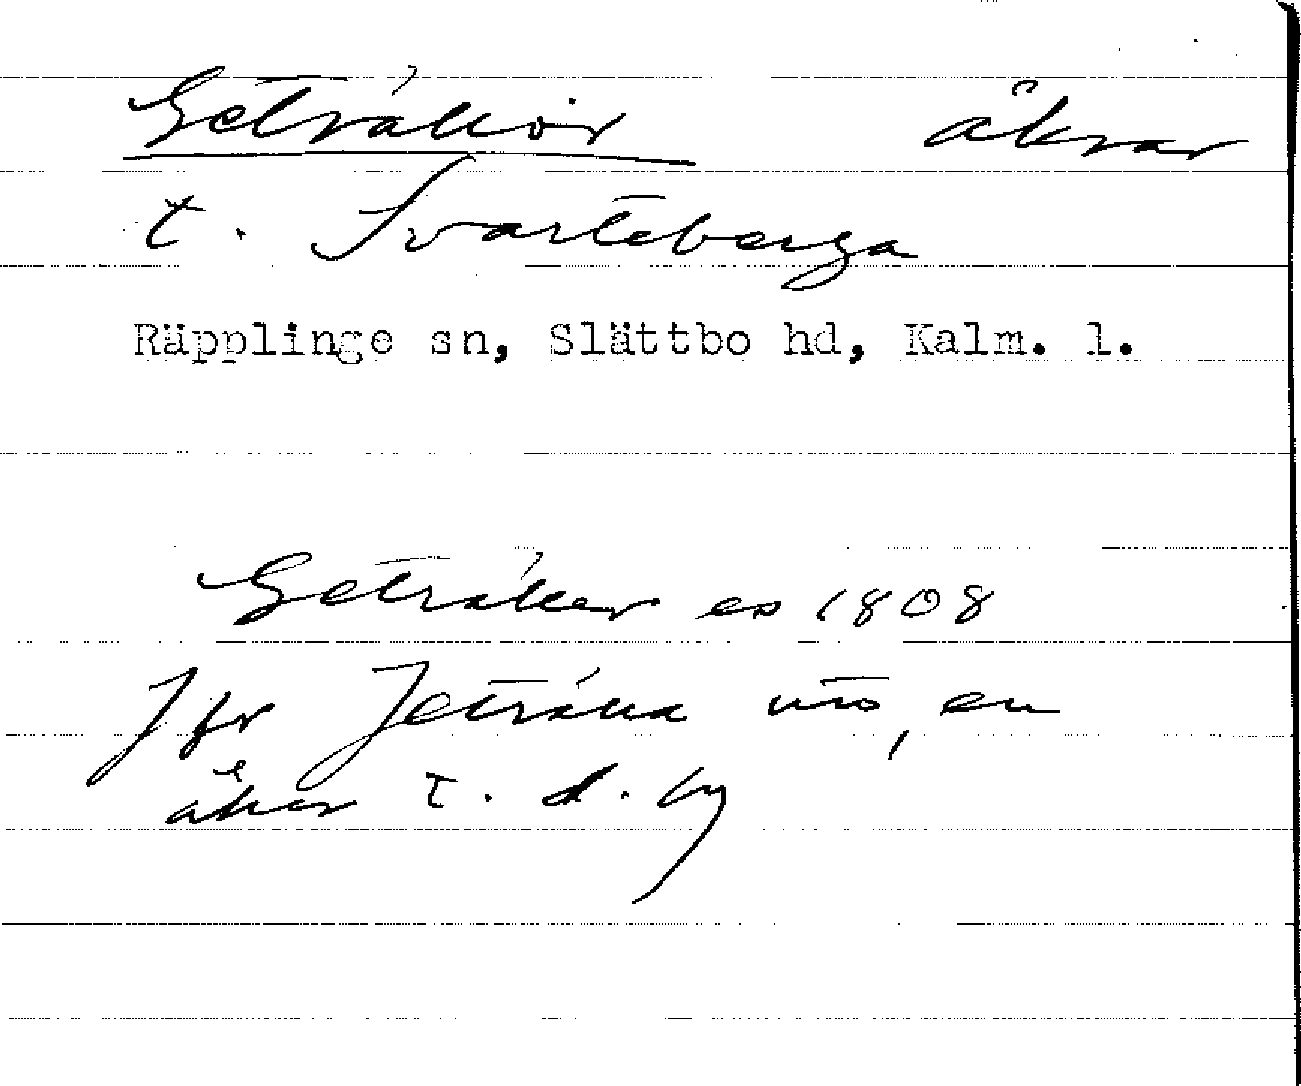 Geträkor åkrar
t. Svarteberga
Räpplinge sn, Slättbo hd, Kalm. l.
Geträker es 1808
Jfr Jeträka uts, en
åker t. d. by